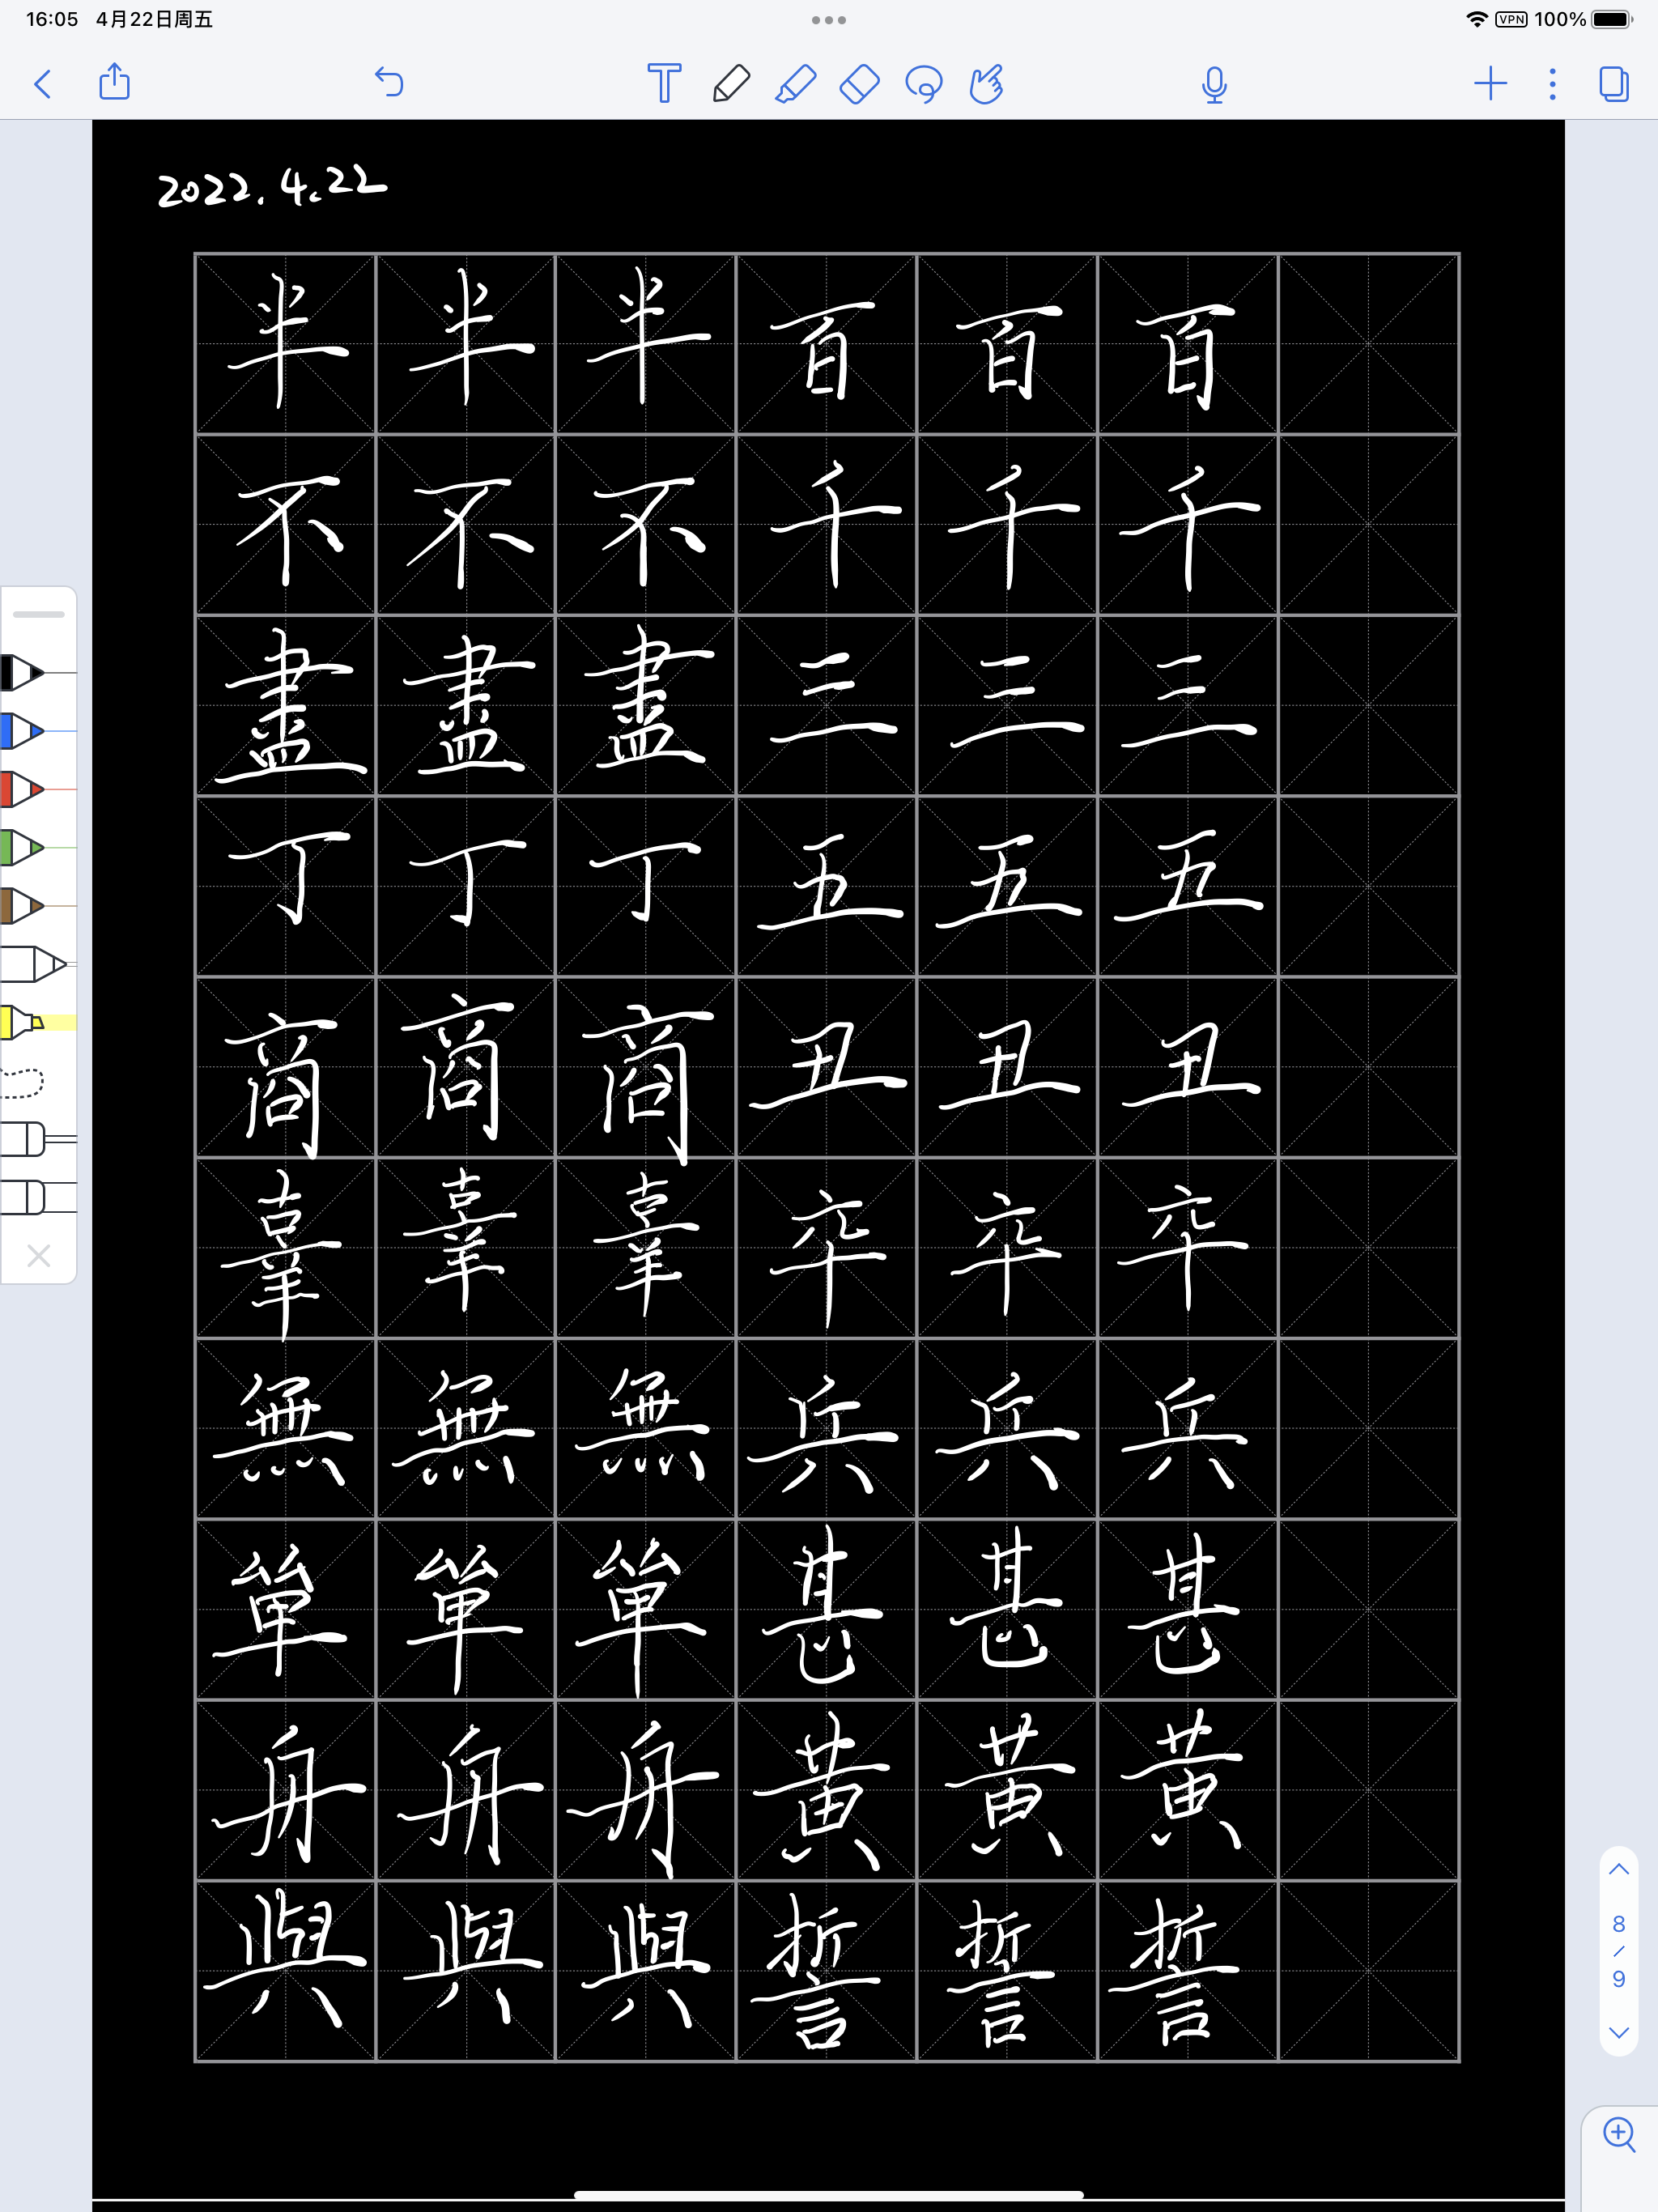 16:05 4月22日周五
VPN 100%
2022.4.22
半 半 半 百 百 百
不 不 不 千 千 千
盡 盡 盡 三 三 三
丁 丁 丁 五 五 五
商 商 商 丑 丑 丑
辜 辜 辜 卒 卒 卒
無 無 無 兵 兵 兵
單 單 單 甚 甚 甚
舟 舟 舟 黃 黃 黃
與 與 與 誓 誓 誓
8
/
9